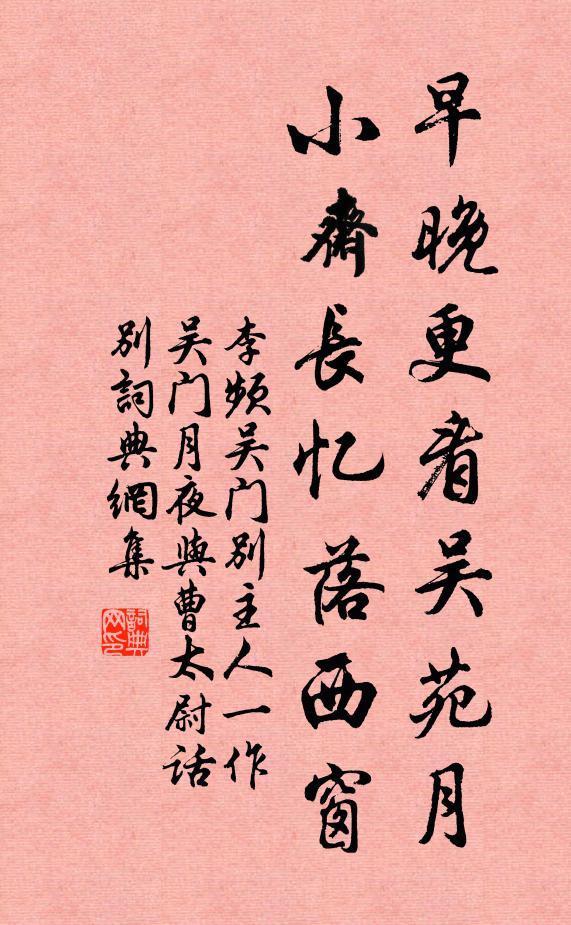 早晚更看吴苑月
小齋長忆落西窗
李频吴门别主人一作
吴门月夜與曹太尉话
别詞典網集
詞典
网印